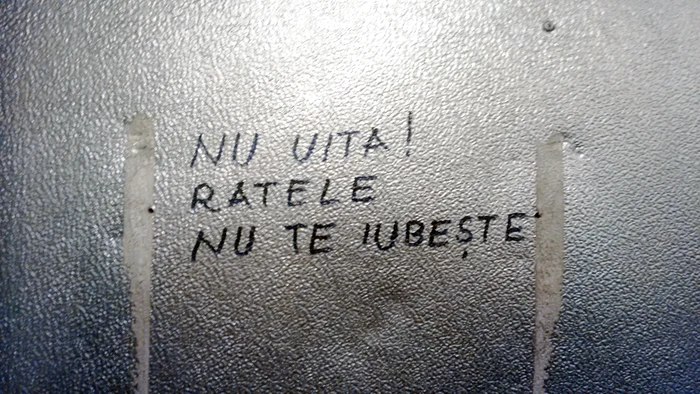 NU UITA!
RATELE
NU TE IUBEȘTE